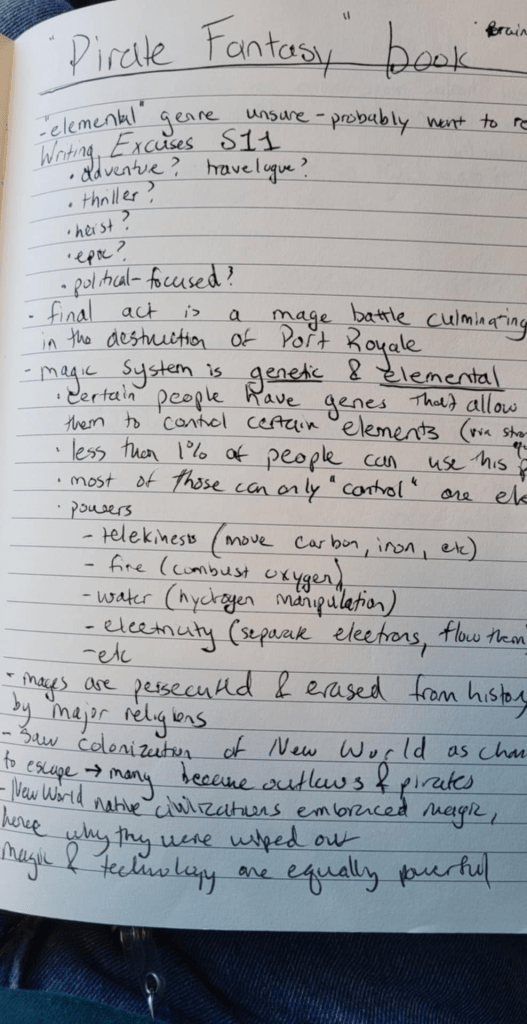 "Pirate Fantasy" book
Brain
- "elemental" genre unsure - probably want to re
Writing Excuses S11
• adventure? travelogue?
• thriller?
• heist?
• epic?
• political-focused?
- final act is a mage battle culminating
in the destruction of Port Royale
- magic system is genetic & elemental
• certain people have genes that allow
them to control certain elements (via
• less than 1% of people can use this
• most of those can only "control" one ele
• powers
- telekinesis (move carbon, iron, etc)
- fire (combust oxygen)
- water (hydrogen manipulation)
- electricity (separate electrons, flow them
- etc
- mages are persecuted & erased from history
by major religions
- saw colonization of New World as chan
to escape → many became outlaws & pirates
- New World native civilizations embraced magic,
hence why they were wiped out
magic & technology are equally powerful